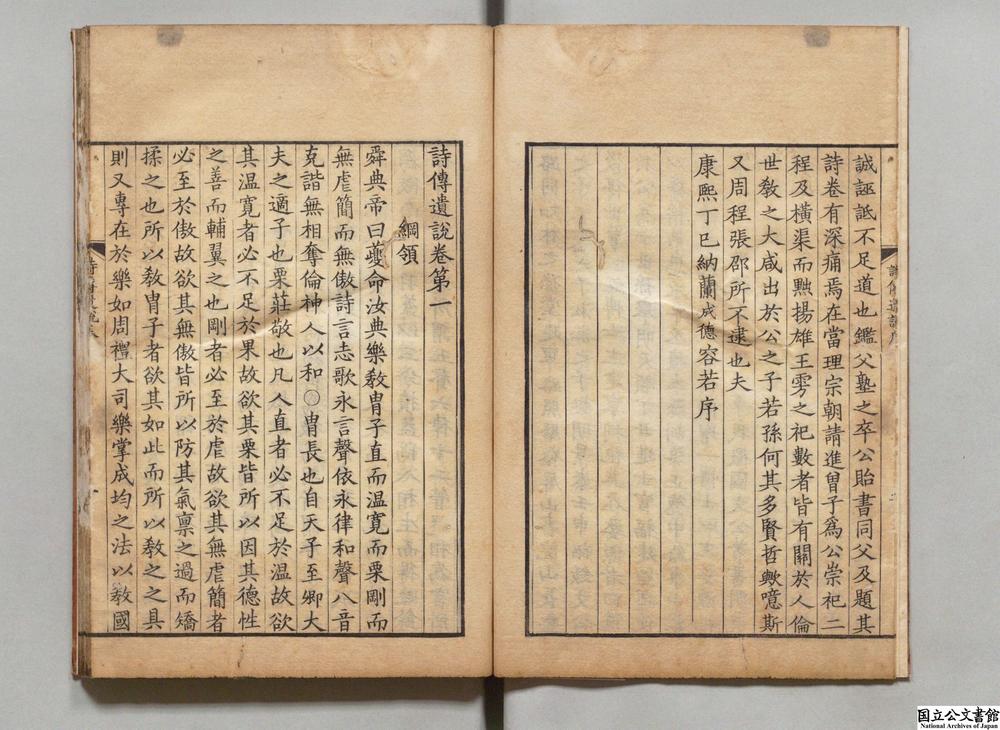 誠誣詆不足道也鑑父塾之卒公貽書同父及題其
詩卷有深痛焉在當理宗朝請進曾子爲公崇祀二
程及橫渠而黜揚雄王雱之祀數者皆有關於人倫
世敎之大咸出於公之子若孫何其多賢哲歟噫斯
又周程張邵所不逮也夫
康熙丁巳納蘭成德容若序
詩傳遺說卷第一
綱領
舜典帝曰夔命汝典樂敎胄子直而溫寬而栗剛而
無虐簡而無傲詩言志歌永言聲依永律和聲八音
克諧無相奪倫神人以和○胄長也自天子至卿大
夫之適子也栗莊敬也凡人直者必不足於溫故欲
其溫寬者必不足於果故欲其栗皆所以因其德性
之善而輔翼之也剛者必至於虐故欲其無虐簡者
必至於傲故欲其無傲皆所以防其氣禀之過而矯
揉之也所以敎胄子者欲其如此而所以敎之之具
則又專在於樂如周禮大司樂掌成均之法以敎國
国立公文書館
National Archives of Japan